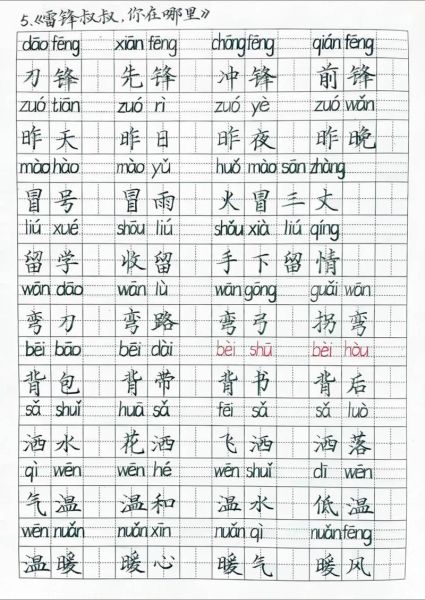 5.《雷锋叔叔,你在哪里》
dāo fēng xiān fēng chōng fēng qián fēng
刀锋 先锋 冲锋 前锋
zuó tiān zuó rì zuó yè zuó wǎn
昨天 昨日 昨夜 昨晚
mào hào mào yǔ huǒ mào sān zhàng
冒号 冒雨 火冒三丈
liú xué shōu liú shǒu xià liú qíng
留学 收留 手下留情
wān dāo wān lù wān gōng guǎi wān
弯刀 弯路 弯弓 拐弯
bēi bāo bēi dài bèi shū bèi hòu
背包 背带 背书 背后
sǎ shuǐ huā sǎ fēi sǎ sǎ luò
洒水 花洒 飞洒 洒落
qì wēn wēn hé wēn shuǐ dī wēn
气温 温和 温水 低温
wēn nuǎn nuǎn xīn nuǎn qì nuǎn fēng
温暖 暖心 暖气 暖风